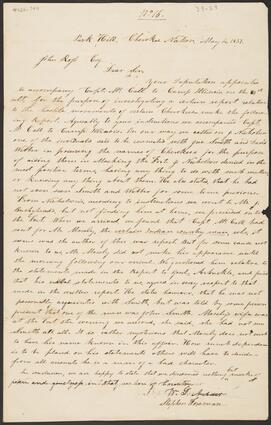 No 16.
Park Hill, Cherokee Nation, May
John Ross Esq
Dear Sir,
Your Deputation appointed
to accompany Capt. McCall to Camp Illinois on the
ult. for the purpose of investigating a certain report relative
to the hostile movements of certain Cherokees make the follow-
ing Report. Agreeably to your instructions we accompanied Capt.
McCall to Camp Illinois. On our way we called on J Nicholson
one of the individuals said to be connected with Jno Smith and David
Webber in procuring the names of Cherokees for the purpose of
aiding them in attacking the Fort. J. Nicholson denied in the
most positive terms, having any thing to do with such matters
or knowing any thing about them. He also stated, that he had
not even seen Smith and Webber for some time previous.
From Nicholson, according to instructions we went to
but not finding him at home, we proceeded on to
the Fort. When we arrived we found that Capt. McCall had
sent for Mr. Mosely, the certain Indian country man, who, it
seems was the author of this war report. But for some cause not
known to us, Mr. Mosely did not make his appearance until
the morning following our arrival. We questioned him relative to
the statements made in the Report to Genl. Arbuckle, and find
that his statements to us agreed in every respect to that
made in the written report. He also stated, however, that he was not
personally acquainted with Smith, but was told by some person
present that one of the men was John Smith. Mosely's wife was
at the Fort the evening we arrived, she said, she had not seen
Smith at all. It is rather mysterious that Mosely does not want
to have his name known in this affair. How much depend-
ence is to be placed on his statements others will have to decide.
from all accounts he is a man of a bad character.
In conclusion, we are happy to state that we discovered nothing but
peace and good news in that section of Country.
Stephen Foreman